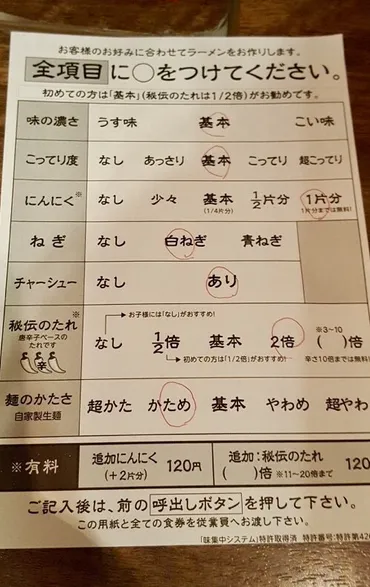 お客様のお好みに合わせてラーメンをお作りします。
全項目に○をつけてください。
初めての方は「基本」(秘伝のたれは1/2倍)がお勧めです。
味の濃さ うす味 基本 こい味
こってり度 なし あっさり 基本 こってり 超こってり
にんにく※ なし 少々 基本 1/2片分 1片分
(1/4片分) 1片分までは無料!
ねぎ なし 白ねぎ 青ねぎ
チャーシュー なし あり
お子様には「なし」がおすすめ!
秘伝のたれ※ なし 1/2倍 基本 2倍 ※3~10 ( )倍
唐辛子ベースのたれです
辛
初めての方は「1/2倍」がおすすめ! 辛さ10倍までは無料!
麺のかたさ 超かた かため 基本 やわめ 超やわ
自家製生麺
※有料 追加にんにく (+2片分) 120円 追加:秘伝のたれ ( )倍 ※11~20倍まで 120
ご記入後は、前の呼出しボタンを押して下さい。
この用紙と全ての食券を従業員へお渡し下さい。
「味集中システム」特許取得済 特許番号:特許第426